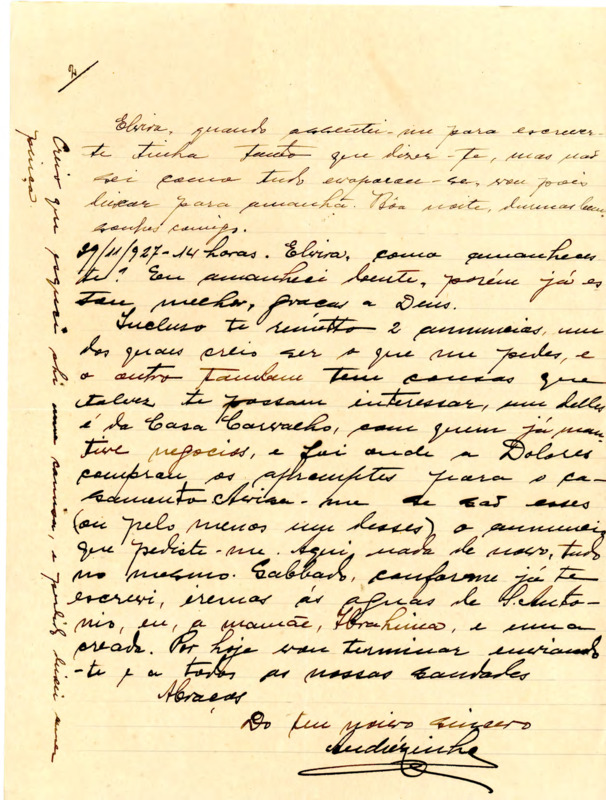 2/
Elvira, quando assentei-me para escrever-
te tinha tanto que dizer-te, mas não
sei como tudo evaporou-se, vou pois
deixar para amanhã. Bôa noite, durmas bem
sonhes comigo.
29/11/927-14 horas. Elvira, como amanheces
te? Eu amanheci doente, porém já es
tou melhor, graças a Deus.
Incluso te remetto 2 annuncios, um
dos quaes creio ser o que me pedes, e
o outro tambem tem cousas que
talvez te possam interessar, um delles
é da Casa Carvalho, com quem já man
tive negocios, e foi onde a Dolores
comprou os apromptes para o ca-
samento. Avisa-me se são esses
(ou pelo menos um desses) o annuncio
que pediste-me. Aqui, nada de novo, tudo
no mesmo. Sabbado, conforme já te
escrevi, iremos ás aguas de S. Anto-
nio, eu, a mamãe, Ibrahima, e uma
creada. Por hoje vou terminar enviando
-te e a todos as nossas saudades
Abraços
Do teu noivo sincero
Andrézinho
Creio que esqueci ahi uma camisa, e